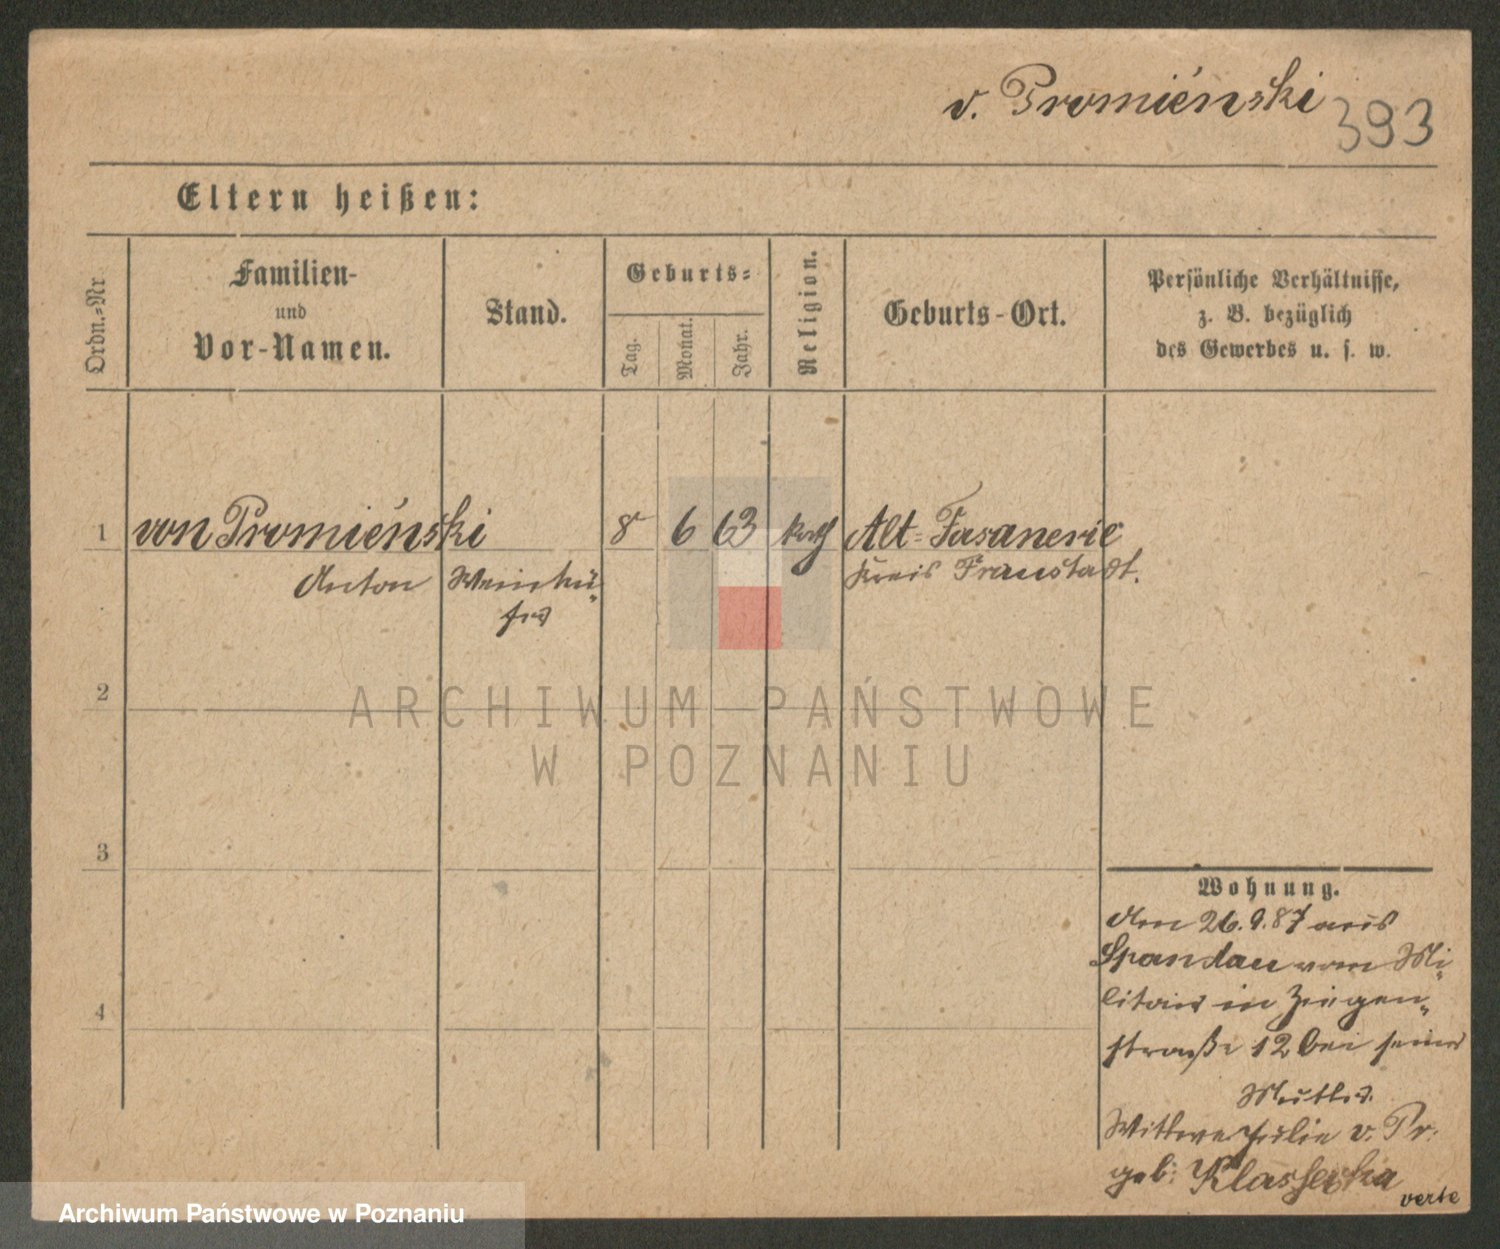 v. Promieński 393
Eltern heißen:
Ordn.-Nr
Familien-
und
Vor-Namen.
Stand.
Geburts-
Tag.
Monat.
Jahr.
Religion.
Geburts-Ort.
Persönliche Verhältnisse,
z. B. bezüglich
des Gewerbes u. s. w.
1 von Promieński 8 6 63 kath Alt-Fasanerie
Anton Kreis Fraustadt.
2
3
4
Wohnung.
Am 26.9.87 aus
Spandau vom Mi-
litair in Ziegen-
straße 12 bei seiner
Mutter.
Wittwe Julie v. Pr.
geb:
verte
ARCHIWUM PAŃSTWOWE
W POZNANIU
Archiwum Państwowe w Poznaniu